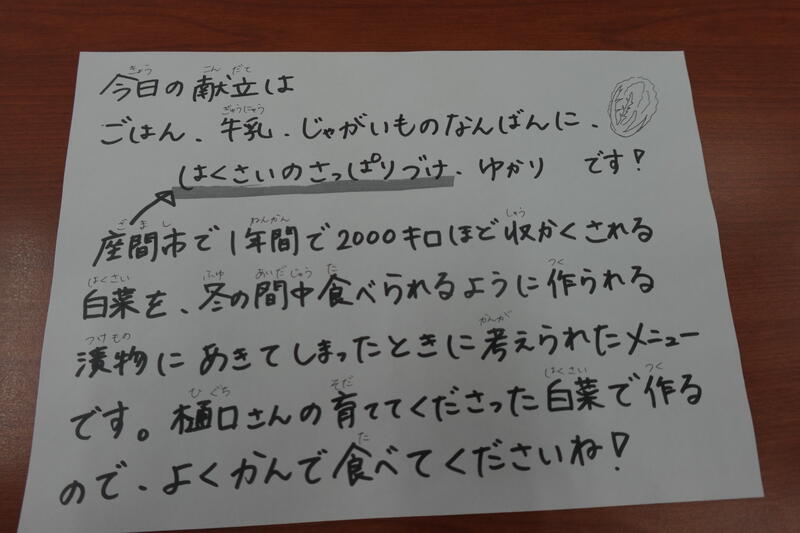 今日の献立は
ごはん、牛乳、じゃがいものなんばんに、
はくさいのさっぱりづけ、ゆかり です!
座間市で1年間で2000キロほど収かくされる
白菜を、冬の間中食べられるように作られる
漬物にあきてしまったときに考えられたメニュー
です。樋口さんの育ててくださった白菜で作る
ので、よくかんで食べてくださいね!